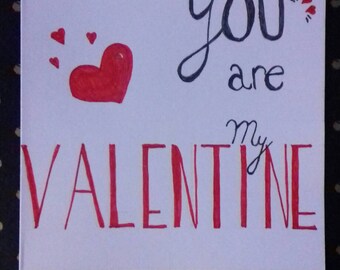 You
are
my
VALENTINE